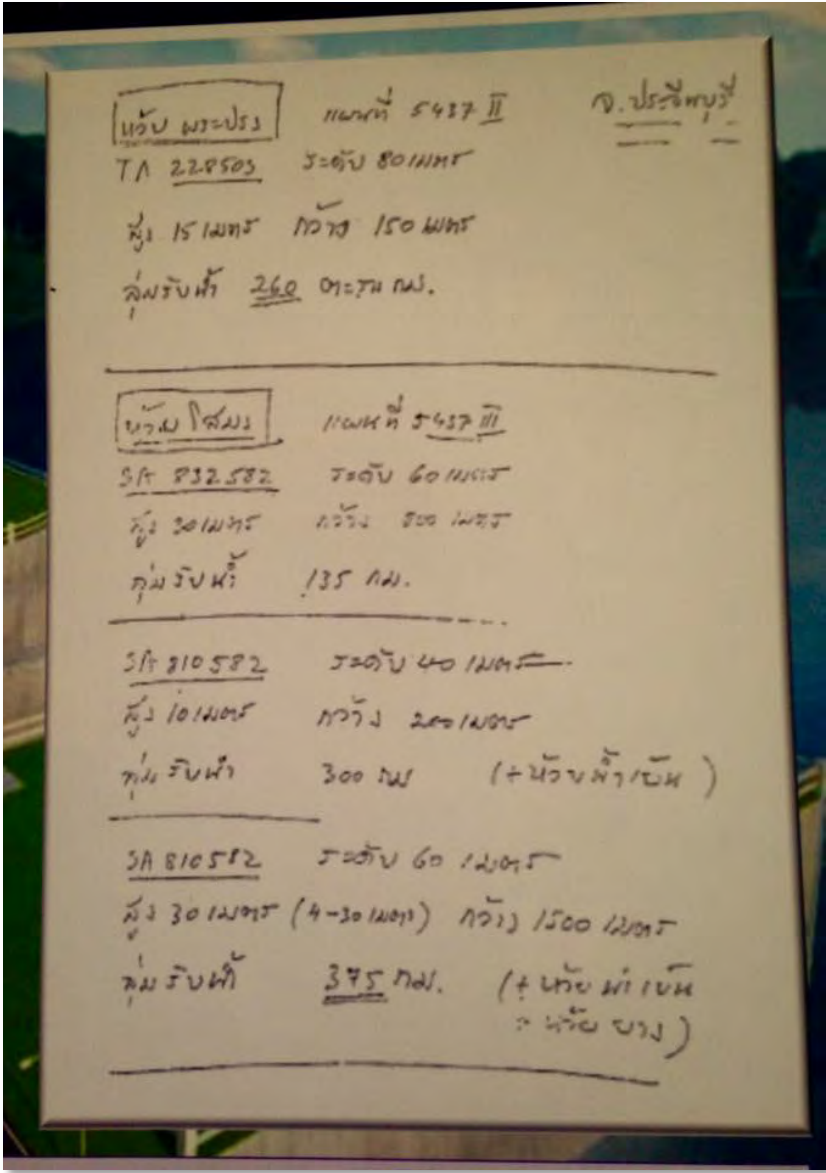 แควพระปรง แผนที่ 5437 II จ.ปราจีนบุรี
TA 228503 ระดับ 80 เมตร
สูง 15 เมตร กว้าง 150 เมตร
ลุ่มรับน้ำ 260 ตร. กม.
ห้วยโสมง แผนที่ 5437 III
SA 832582 ระดับ 60 เมตร
สูง 30 เมตร กว้าง 800 เมตร
ลุ่มรับน้ำ 135 กม.
SA 810582 ระดับ 40 เมตร
สูง 10 เมตร กว้าง 200 เมตร
ลุ่มรับน้ำ 300 กม (+ ห้วยน้ำเย็น)
SA 810582 ระดับ 60 เมตร
สูง 30 เมตร (4-30 เมตร) กว้าง 1500 เมตร
ลุ่มรับน้ำ 375 กม. (+ ห้วยน้ำเย็น
+ ห้วยยาง)